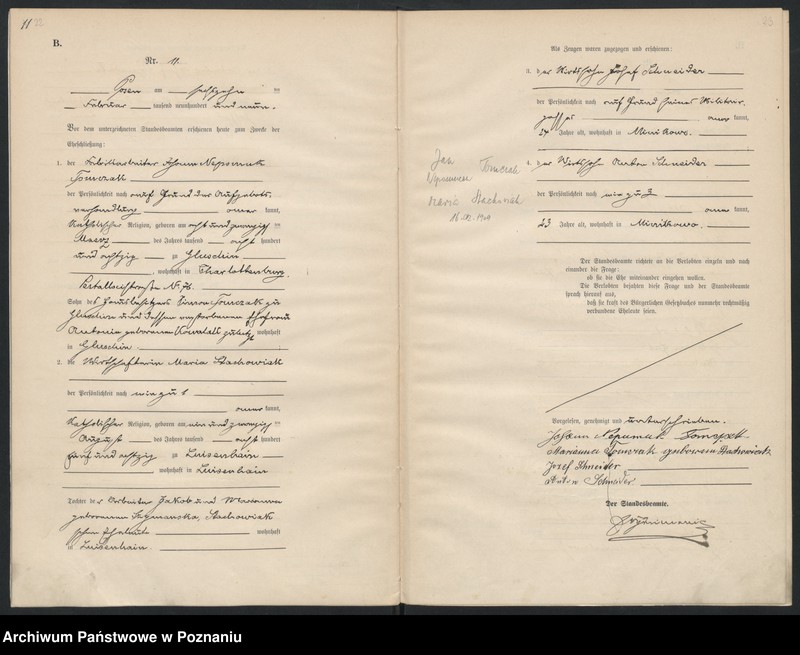 11
B.
Nr. 11.
Posen am sechszehn ten
Februar tausend neunhundert und neun.
Vor dem unterzeichneten Standesbeamten erschienen heute zum Zwecke der
Eheschließung:
1. der Fabrikarbeiter Johann Nepomuk
Tomczak
der Persönlichkeit nach auf Grund der Aufgebots-
verhandlung aner kannt,
katholischer Religion, geboren am acht und zwanzig ten
Maerz des Jahres tausend acht hundert
und achtzig zu Gluschin
, wohnhaft in Charlottenburg,
Pestalozzistraße Nr. 76.
Sohn des Hausbesitzers Simon Tomczak zu
Gluschin und dessen verstorbenen Ehefrau
Antonia geborenen Kowalski zuletzt wohnhaft
in Gluschin
2. die Wirtschafterin Maria Stachowiak
der Persönlichkeit nach wie zu 1
aner kannt,
katholischer Religion, geboren am ein und zwanzig ten
August des Jahres tausend acht hundert
fünf und achtzig zu Luisenhain
wohnhaft in Luisenhain
Tochter der Arbeiter Jakob und
geborenen Szymanska, Stachowiak
schen Eheleute wohnhaft
in Luisenhain.
Als Zeugen waren zugezogen und erschienen:
3. der Wirtssohn Josef Schneider
der Persönlichkeit nach auf Grund seines Militär-
passes aner kannt,
24 Jahre alt, wohnhaft in Minikowo.
4. der Wirtssohn Anton Schneider
der Persönlichkeit nach wie zu 3
aner kannt,
23 Jahre alt, wohnhaft in Minikowo.
Jan
Nepomucen Tomczak
Maria Stachowiak
Der Standesbeamte richtete an die Verlobten einzeln und nach
einander die Frage:
ob sie die Ehe miteinander eingehen wollen.
Die Verlobten bejahten diese Frage und der Standesbeamte
sprach hierauf aus,
daß sie kraft des Bürgerlichen Gesetzbuches nunmehr rechtmäßig
verbundene Eheleute seien.
Vorgelesen, genehmigt und unterschrieben.
Johann Nepumuk Tomczak
Marianna Tomczak geborene Stachowiak
Jozef Schneider
Anton Schneider
Der Standesbeamte.
Archiwum Państwowe w Poznaniu